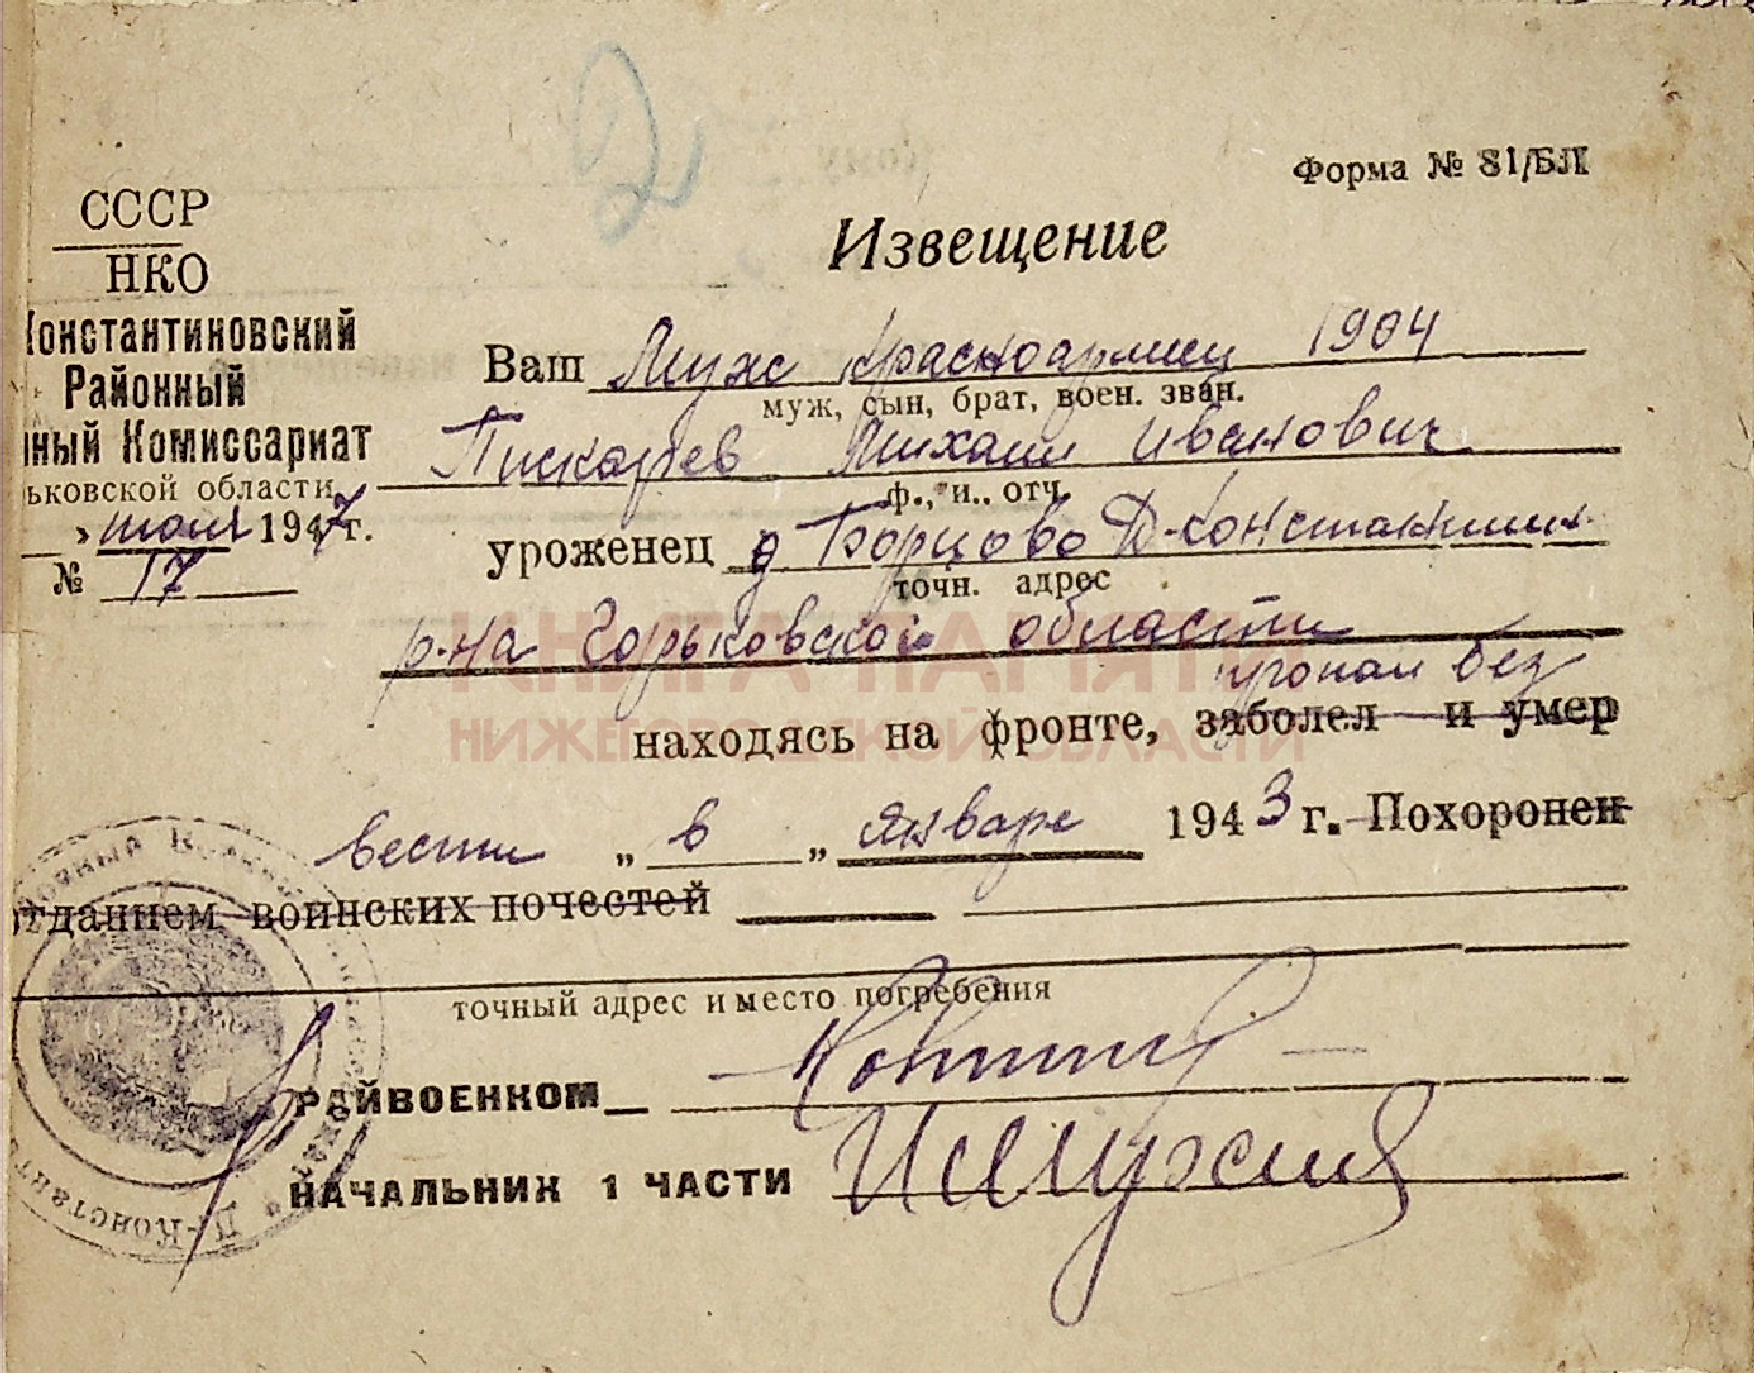 Форма № 81/БЛ
СССР
НКО
Константиновский
Районный
ный Комиссариат
ьковской области
" июля 1947 г.
№ 17
Извещение
Ваш Муж красноармеец 1904
муж, сын, брат, воен. зван.
Пискарев Михаил Иванович
ф., и., отч.
уроженец д. Борцово Д-Константин.
точн. адрес
р-на Горьковской области
пропал без
находясь на фронте, заболел и умер
вести „ в „ январе 1943 г. Похоронен
отданием воинских почестей
точный адрес и место погребения
РАЙВОЕНКОМ
НАЧАЛЬНИК 1 ЧАСТИ
КНИГА ПАМЯТИ
НИЖЕГОРОДСКОЙ ОБЛАСТИ